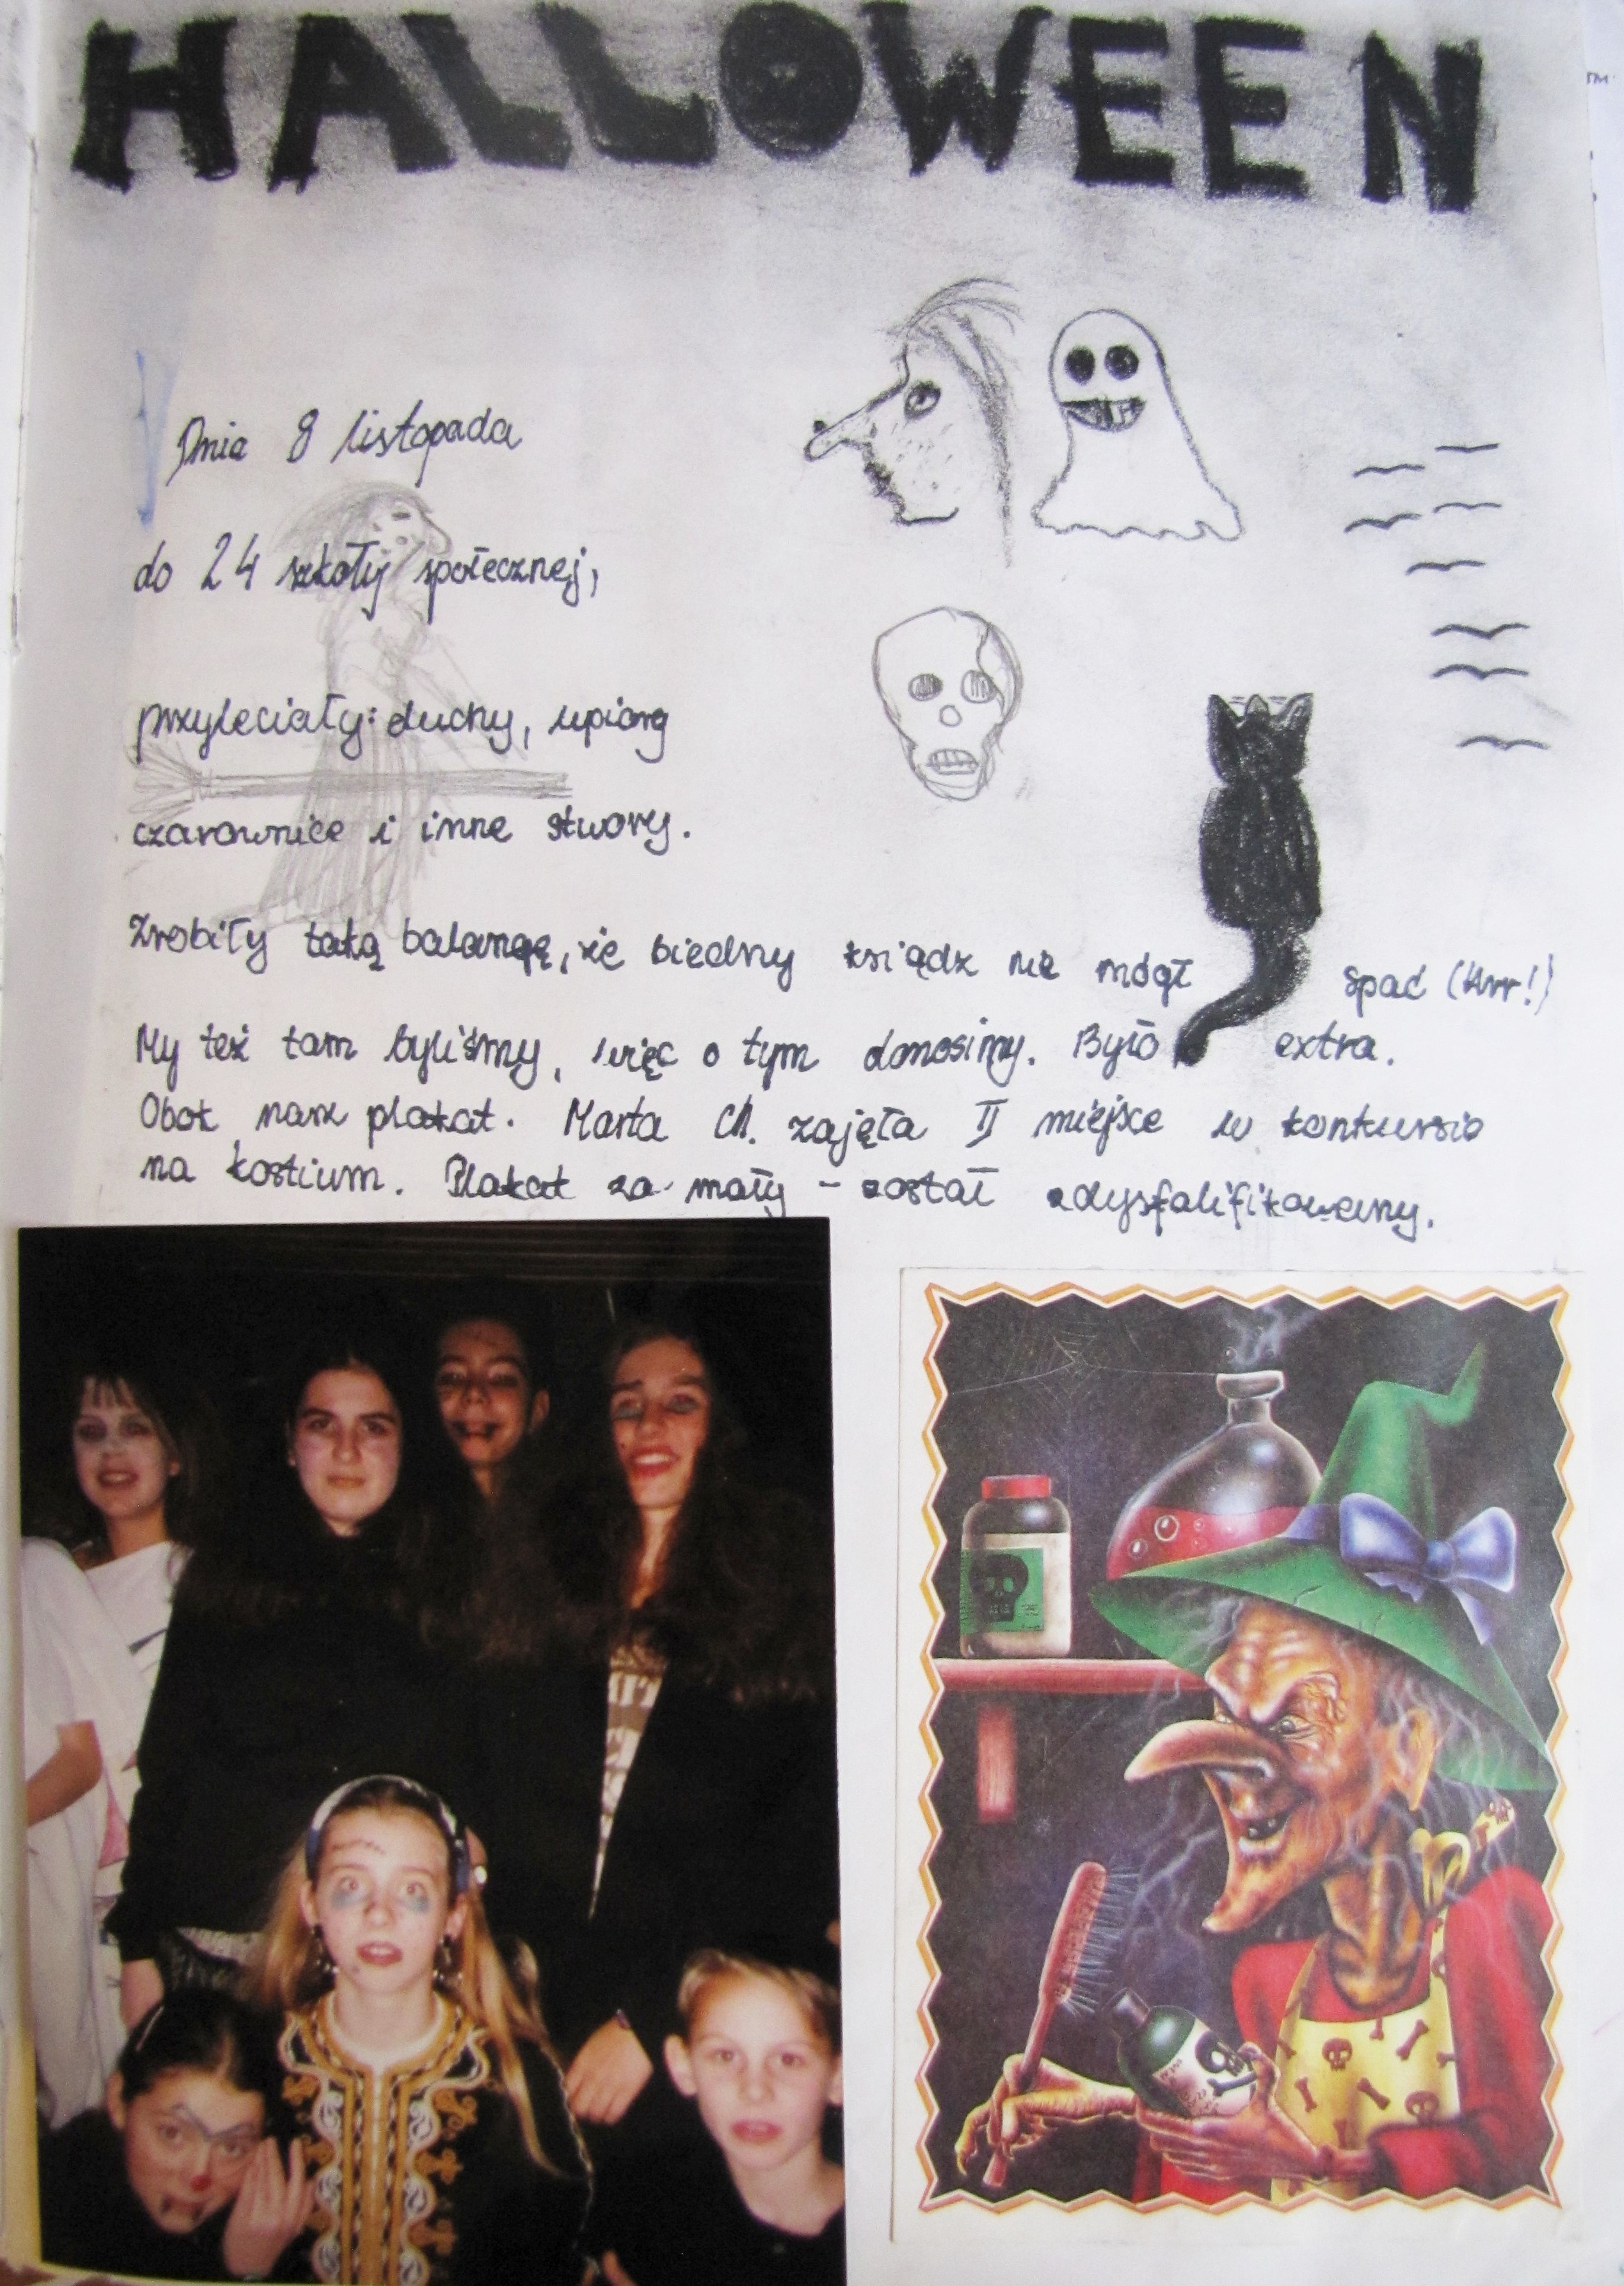 HALLOWEEN
Dnia 8 listopada
do 24 szkoły społecznej,
przyleciały: duchy, upiory
czarownice i inne stwory.
Zrobiły taką balangę, że biedny ksiądz nie mógł spać (Arr!)
My też tam byliśmy, więc o tym donosimy. Było extra.
Obok nasz plakat. Marta Ch. zajęła II miejsce w konkursie
na kostium. Plakat za mały - został zdyskfalifikowany.